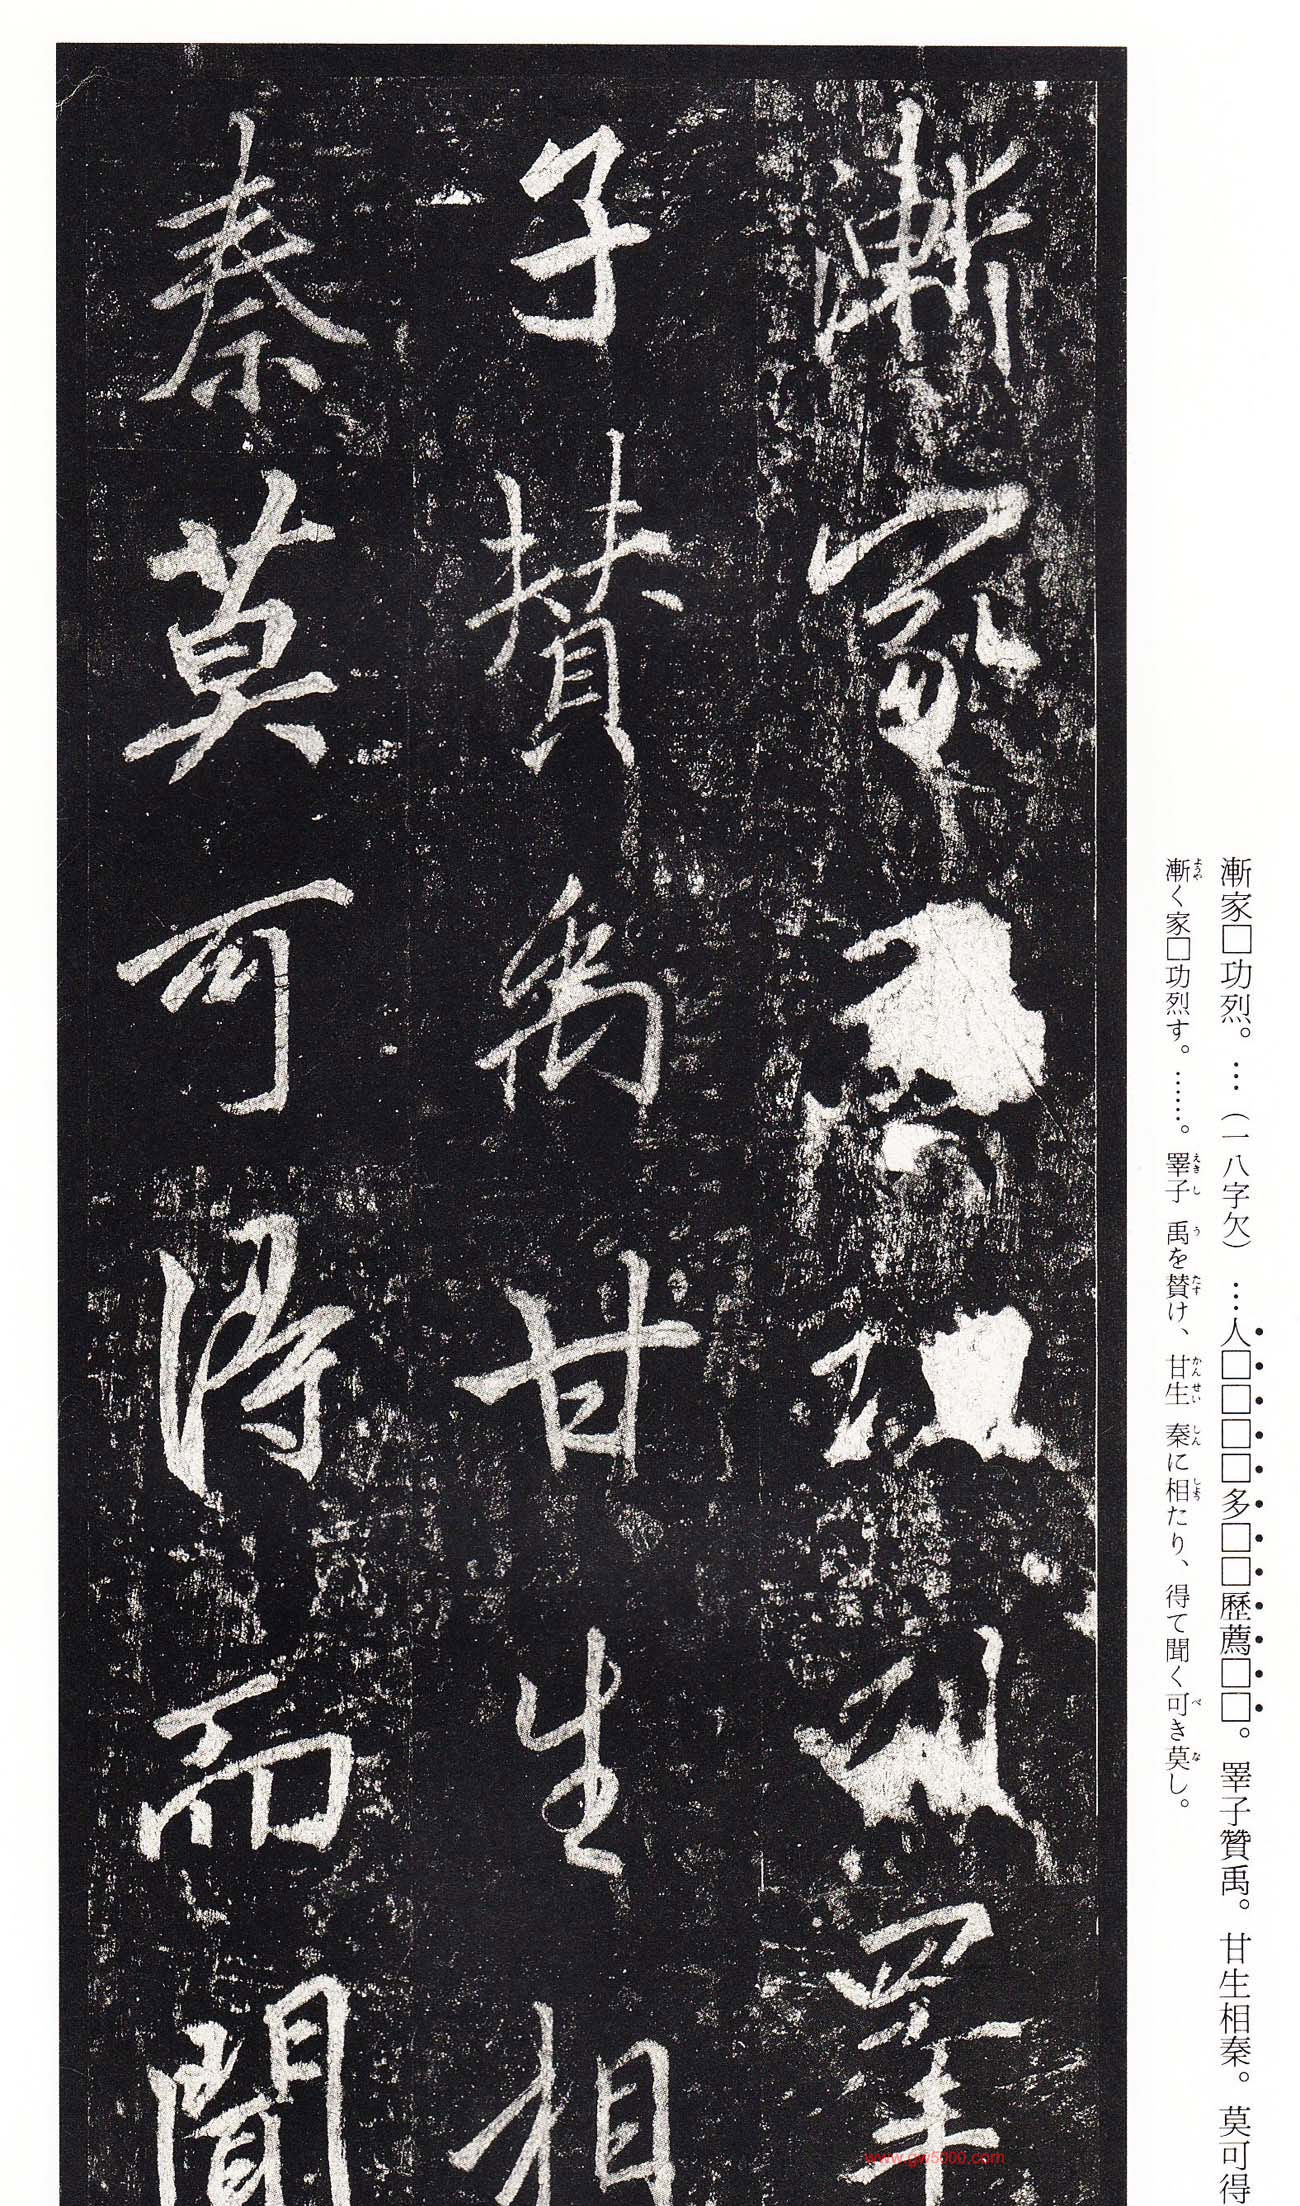 漸家□功烈。…（一八字欠）…人□□□□多□□歷薦□□。睪子贊禹。甘生相秦。莫可得
漸く家□功烈す。……。睪子禹を賛け、甘生秦に相たり、得て聞く可き莫し。
漸家功烈睪
子贊禹甘生相
秦莫可得而聞
www.gw5000.com